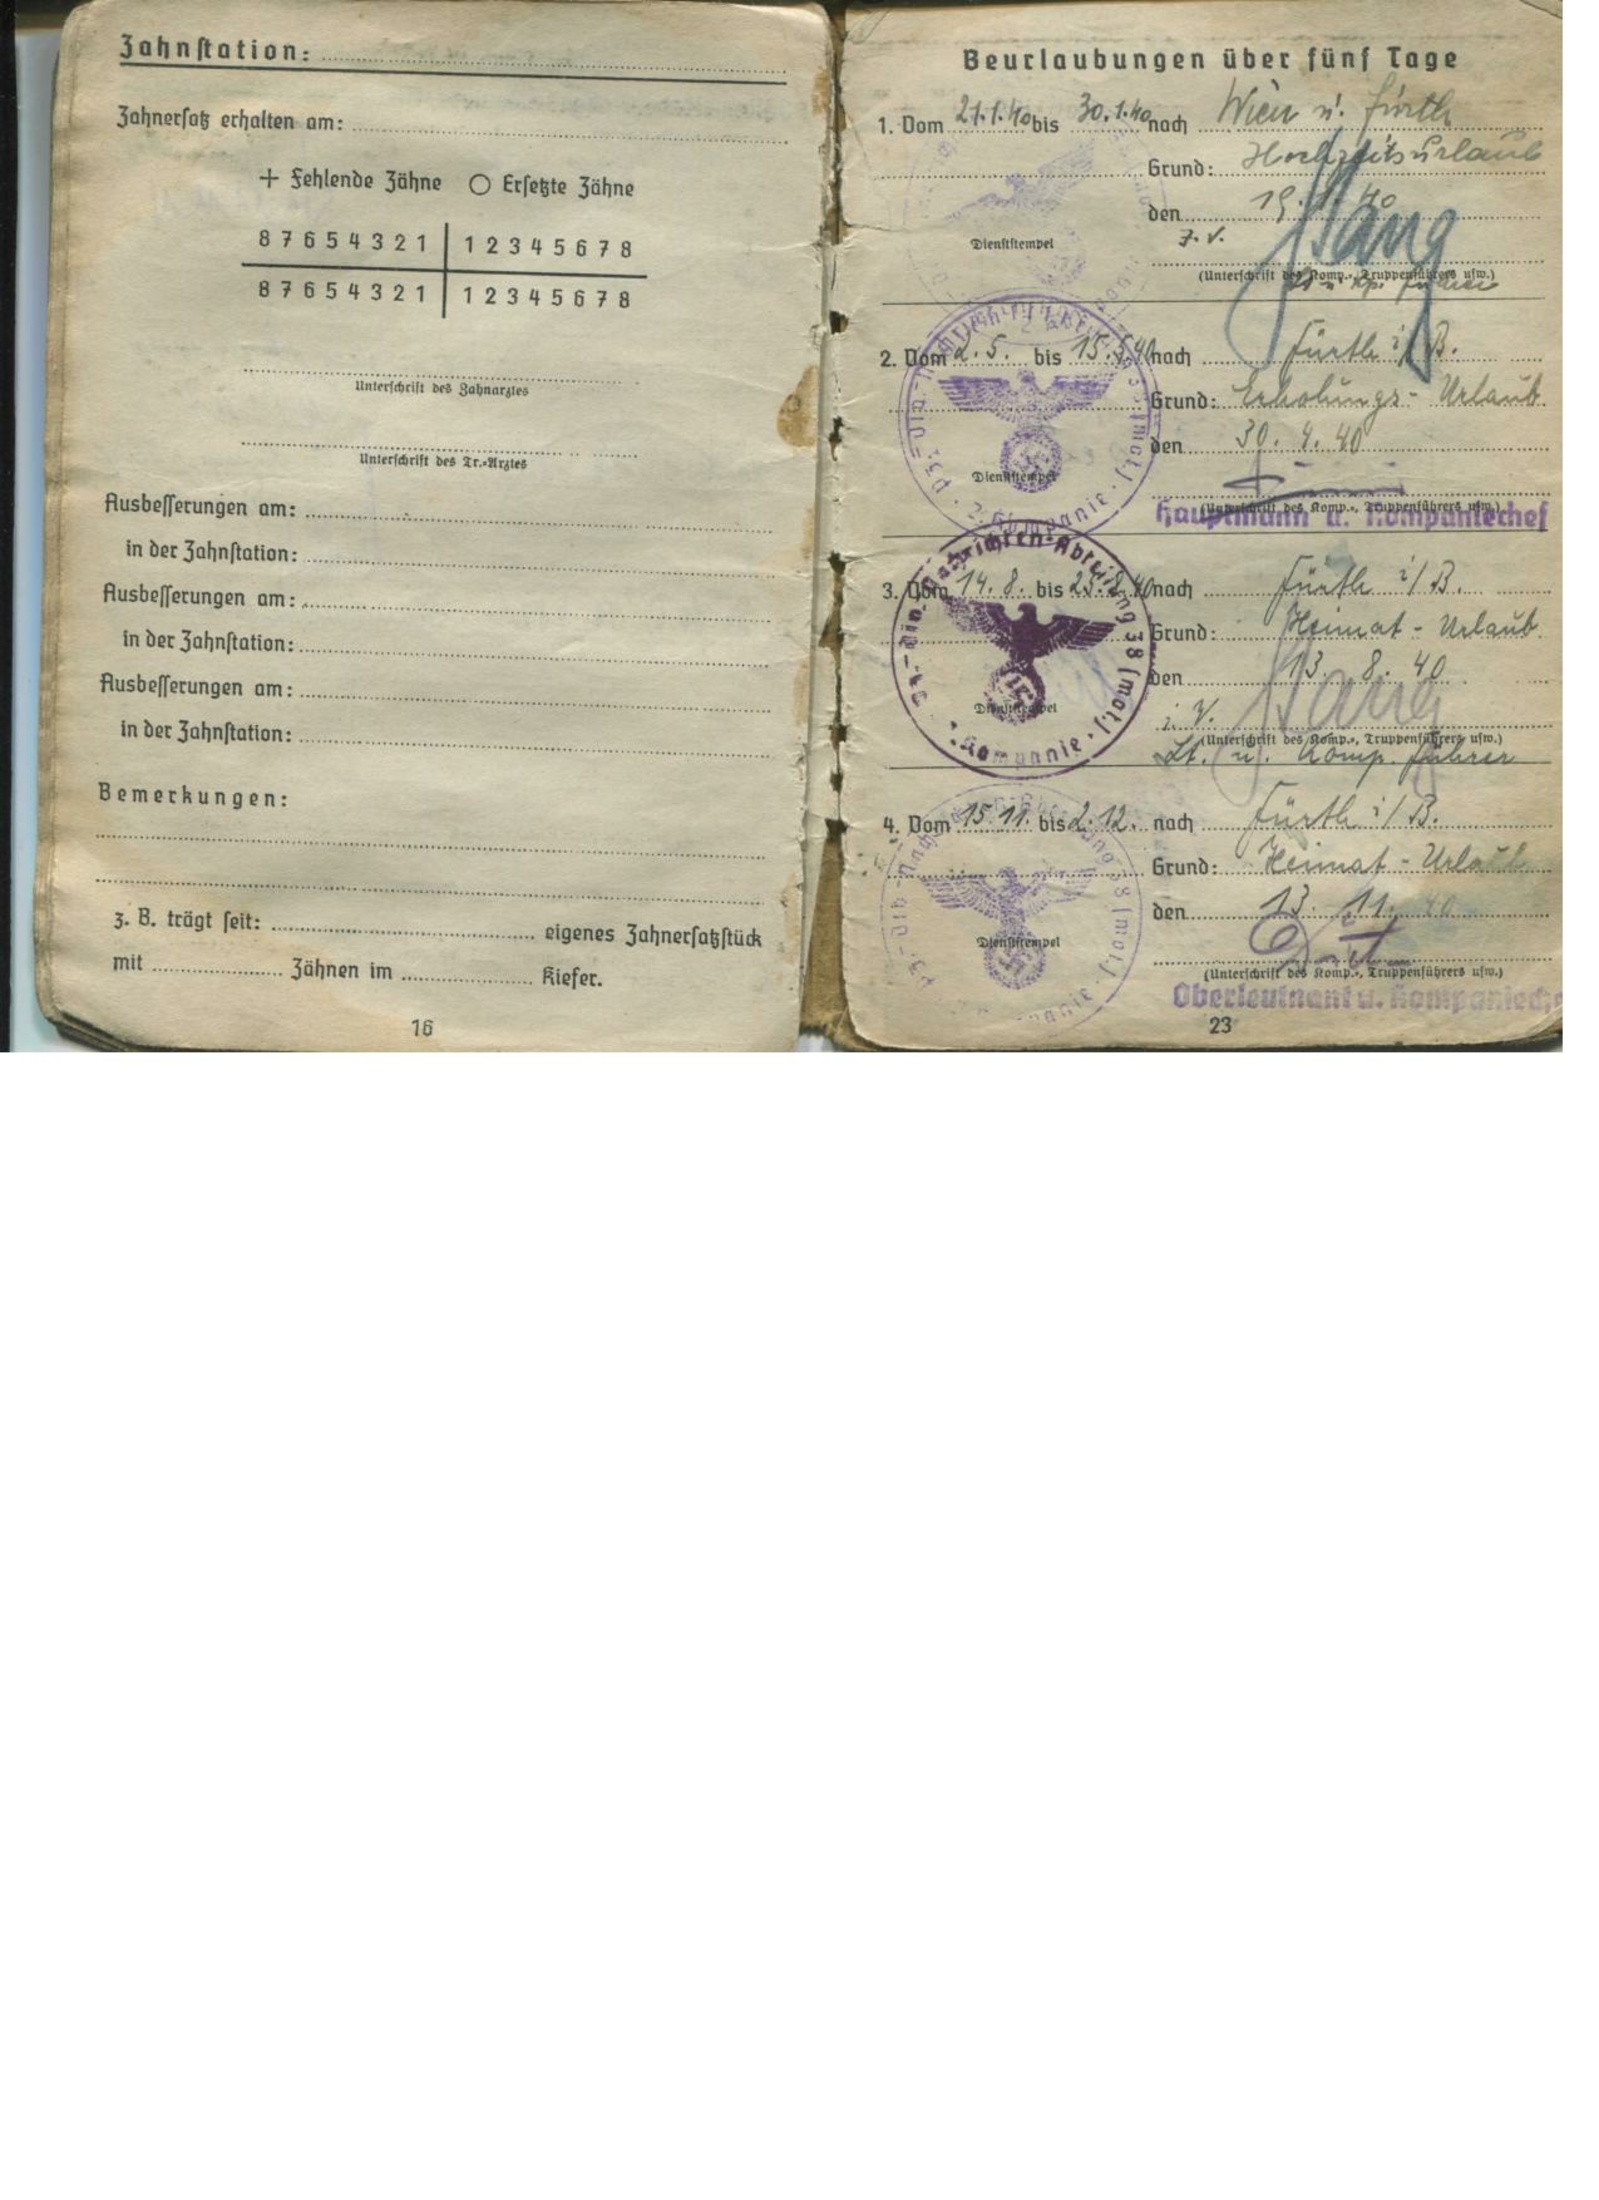 Zahnstation:
Zahnersatz erhalten am:
+ Fehlende Zähne ○ Ersetzte Zähne
8 7 6 5 4 3 2 1 | 1 2 3 4 5 6 7 8
8 7 6 5 4 3 2 1 | 1 2 3 4 5 6 7 8
Unterschrift des Zahnarztes
Unterschrift des Tr.-Arztes
Ausbesserungen am:
in der Zahnstation:
Ausbesserungen am:
in der Zahnstation:
Ausbesserungen am:
in der Zahnstation:
Bemerkungen:
z. B. trägt seit: eigenes Zahnersatzstück
mit Zähnen im Kiefer.
16
Beurlaubungen über fünf Tage
1. Vom 21.1.40 bis 30.1.40 nach Wien u. Fürth
Grund: Hochzeitsurlaub
den 19.1.40
Dienststempel
(Unterschrift des Komp.-, Truppenführers usw.)
2. Vom 2.5. bis 15.5.40 nach Fürth i/B.
Grund: Erholungs-Urlaub
den 30.4.40
Dienststempel
(Unterschrift des Komp.-, Truppenführers usw.)
Hauptmann u. Kompaniechef
3. Vom 14.8. bis 25.8.40 nach Fürth i/B.
Pz.-Div.-Nachrichten-Abteilung 38 (mot.)
Kompanie
Grund: Heimat-Urlaub
den 13.8.40
Dienststempel
i.V.
(Unterschrift des Komp.-, Truppenführers usw.)
Lt. u. Komp. Führer
4. Vom 15.11. bis 2.12. nach Fürth i/B.
Grund: Heimat-Urlaub
den 13.11.40
Dienststempel
(Unterschrift des Komp.-, Truppenführers usw.)
Oberleutnant u. Kompaniechef
23